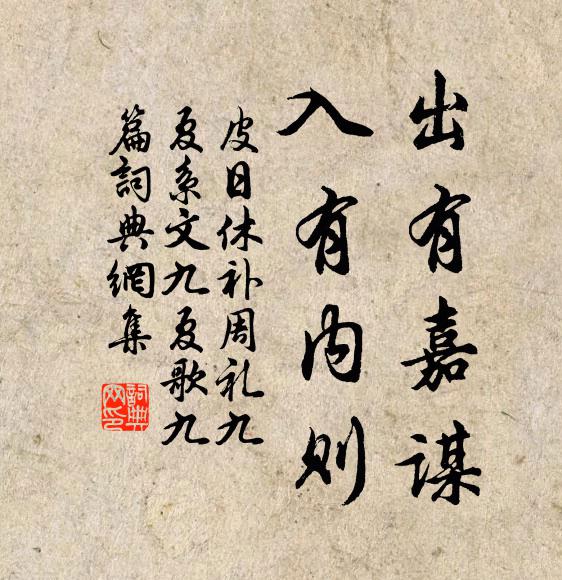 出有嘉谋
入有内则
皮日休补周礼九
夏系文九夏歌九
篇詞典網集
詞典
网印